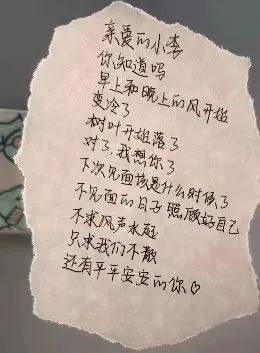 亲爱的小李
你知道吗
早上和晚上的风开始
变冷了
树叶开始落了
对了.我想你了
下次见面该是什么时候了
不见面的日子照顾好自己
不求风声水起
只求我们不散
还有平平安安的你♡